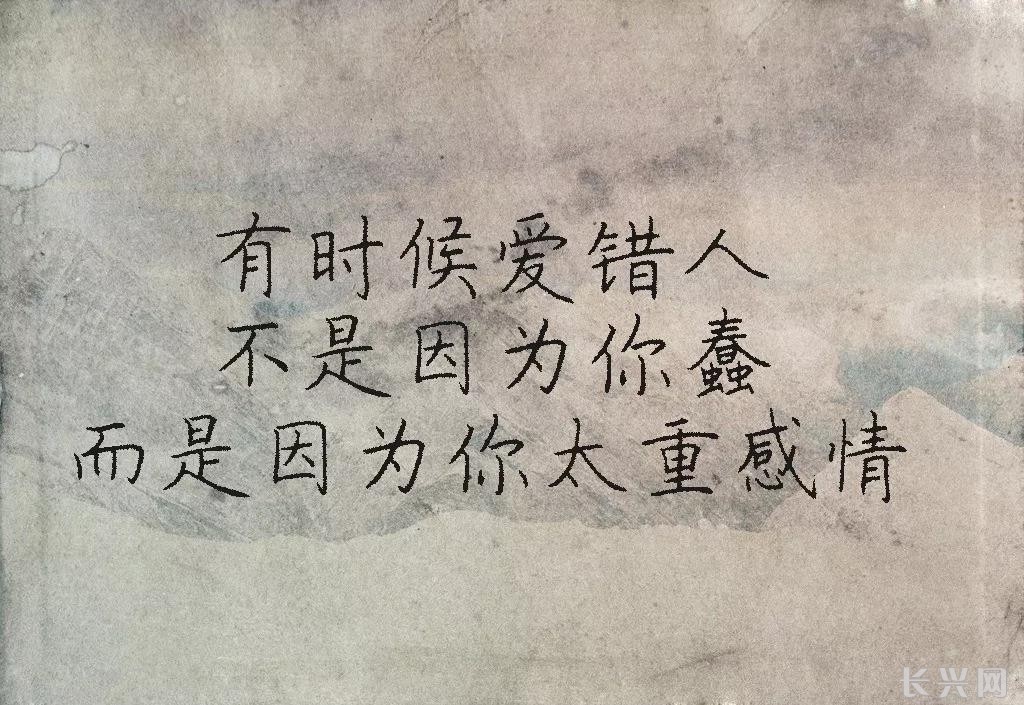 有时候爱错人
不是因为你蠢
而是因为你太重感情
长兴网